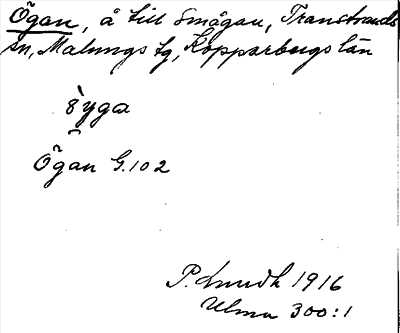 Ögan, å till Smågan, Transtrands
sn, Malungs tg, Kopparbergs län
Ögan G.102
P. Lundh 1916
Ulma 300:1